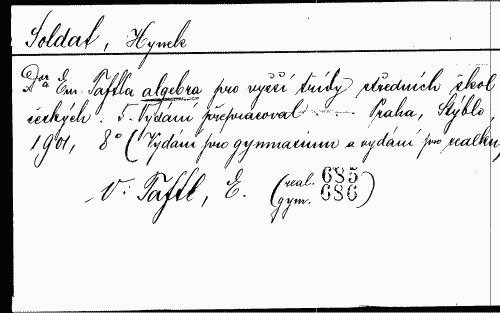 Soldat, Hynek
Dra Em. Taftla algebra pro vyšší třídy středních škol
českých. 5. Vydání přepracoval — Praha, Stýblo,
1901, 8° (Vydání pro gymnasium a vydání pro realku)
V: Taftl, E. (real. 685
gym. 686)